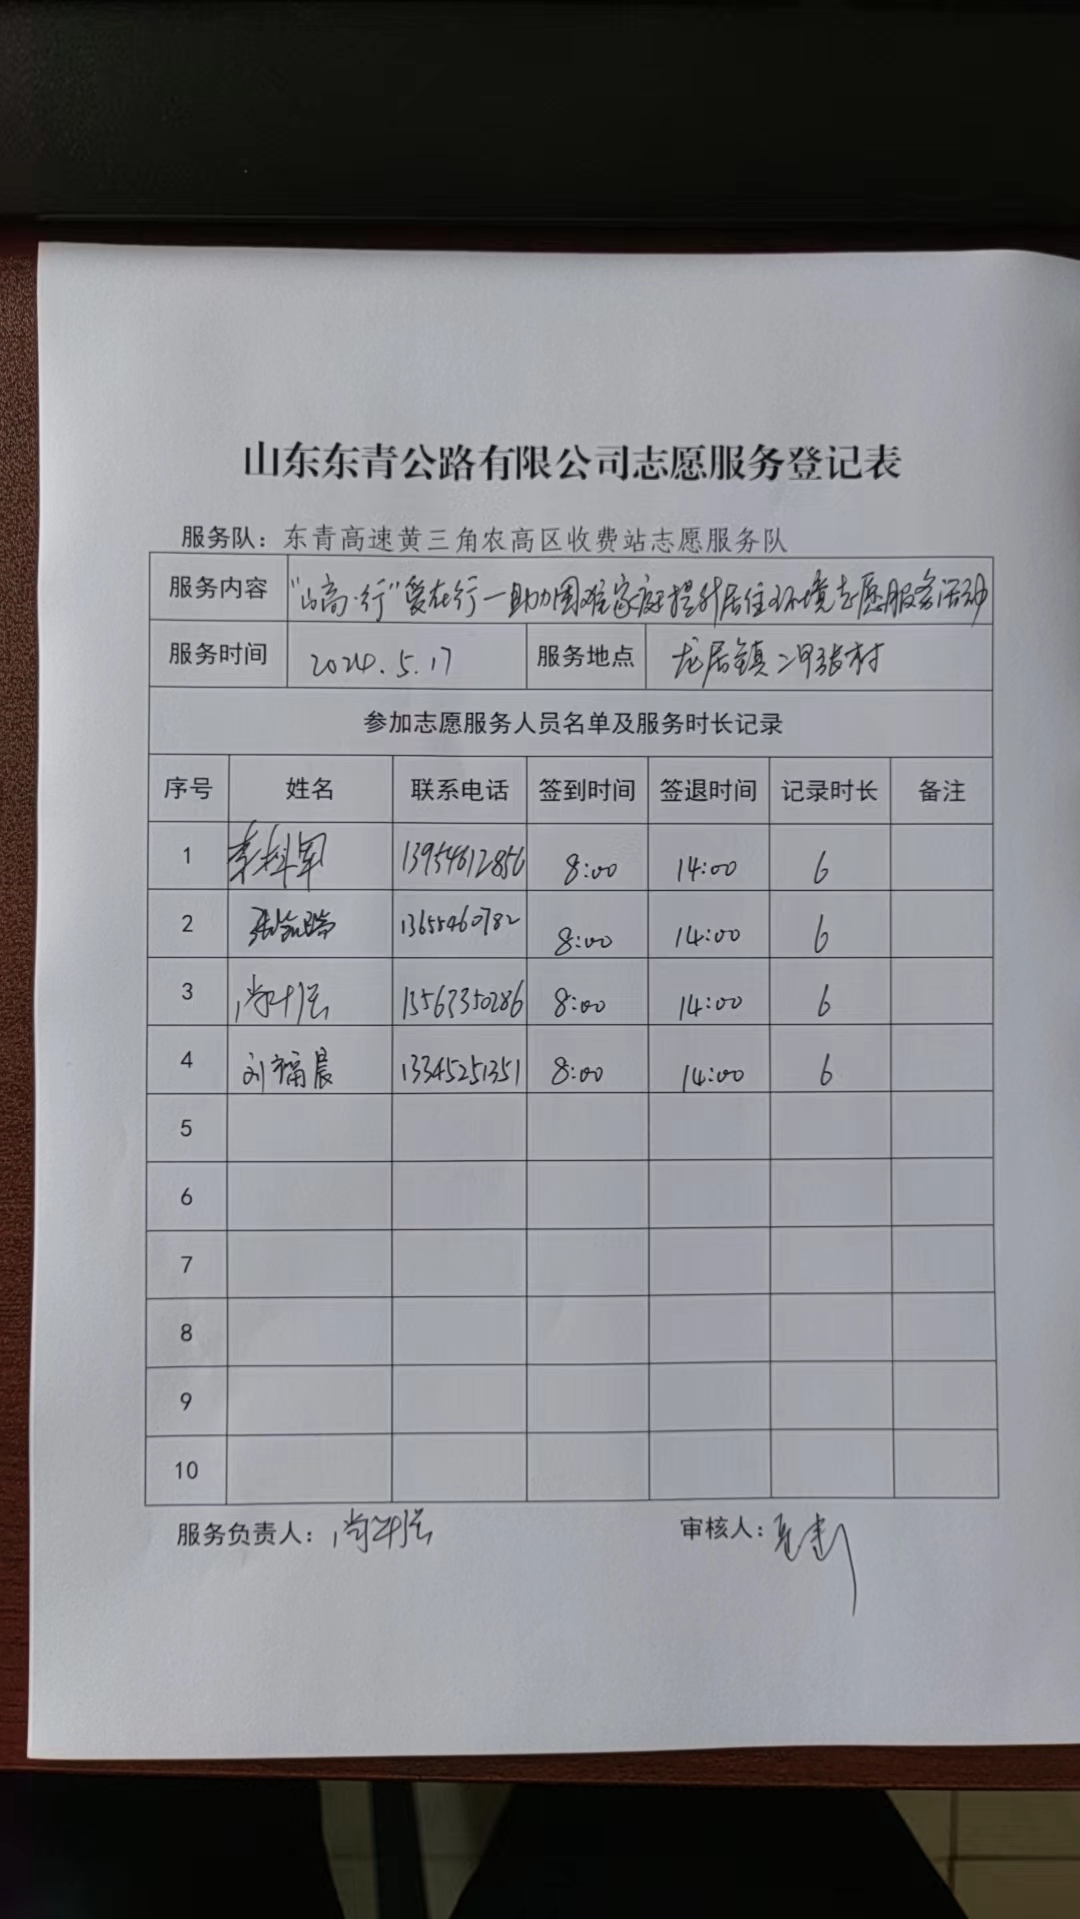 山东东青公路有限公司志愿服务登记表
服务队：东青高速黄三角农高区收费站志愿服务队
服务内容 "山高·行"爱在行—助力困难家庭提升居住环境志愿服务活动
服务时间 2024.5.17 服务地点 龙居镇 张村
参加志愿服务人员名单及服务时长记录
序号 姓名 联系电话 签到时间 签退时间 记录时长 备注
1 13954612856 8:00 14:00 6
2 13655460782 8:00 14:00 6
3 13563350286 8:00 14:00 6
4 刘福晨 13345251351 8:00 14:00 6
5
6
7
8
9
10
服务负责人： 审核人：